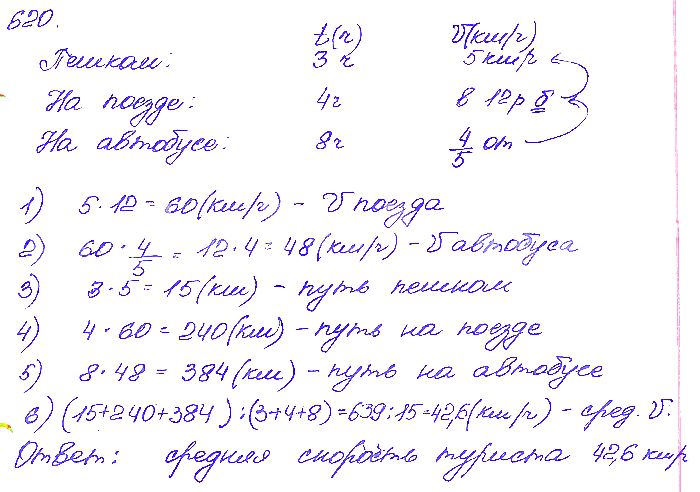 620.
t(ч) V(км/ч)
Пешком: 3 ч 5 км/ч
На поезде: 4ч в 12р б
На автобусе: 8ч 4/5 от
1) 5·12=60(км/ч) - V поезда
2) 60·4/5=12·4=48(км/ч) - V автобуса
3) 3·5=15(км) - путь пешком
4) 4·60=240(км) - путь на поезде
5) 8·48=384(км) - путь на автобусе
6) (15+240+384):(3+4+8)=639:15=42,6(км/ч) - сред. V.
Ответ: средняя скорость туриста 42,6 км/ч